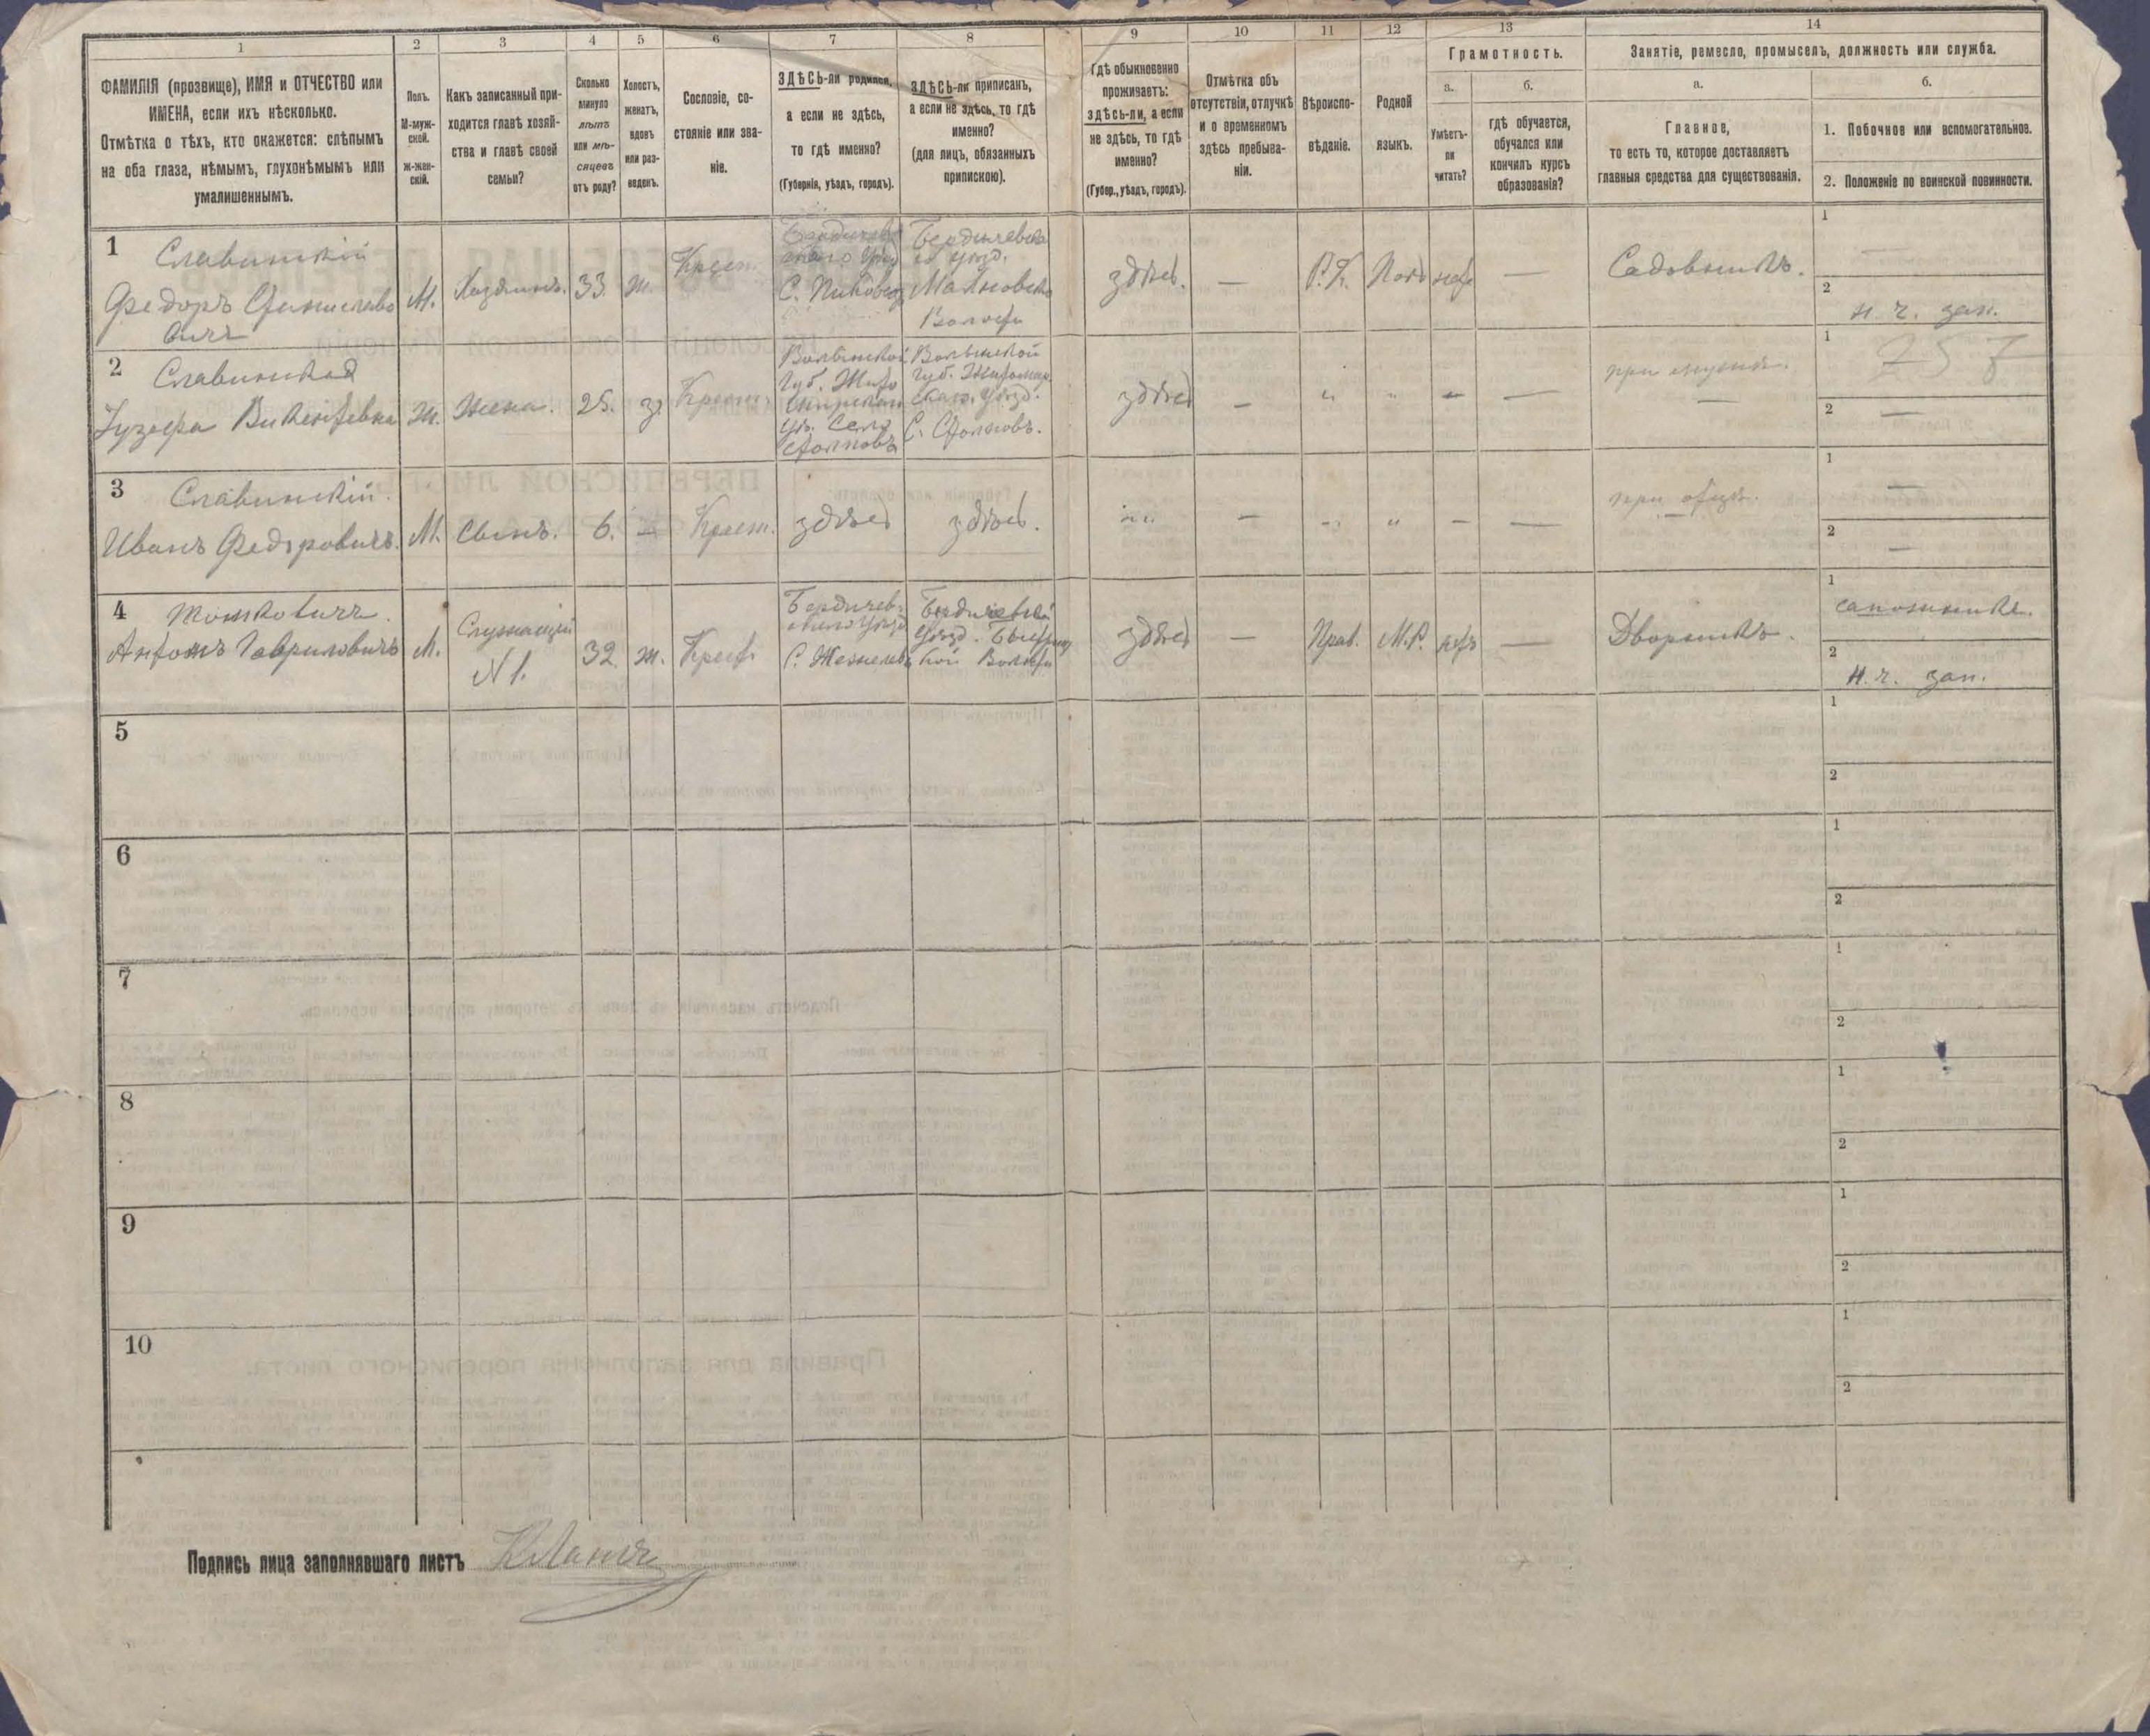 1
2
3
4
5
6
7
8
9
10
11
12
13
14
ФАМИЛІЯ (прозвище), ИМЯ и ОТЧЕСТВО или
ИМЕНА, если ихъ нѣсколько.
Отмѣтка о тѣхъ, кто окажется: слѣпымъ
на оба глаза, нѣмымъ, глухонѣмымъ или
умалишеннымъ.
Полъ.
М-муж-
ской.
Ж-жен-
скій.
Какъ записанный при-
ходится главѣ хозяй-
ства и главѣ своей
семьи?
Сколько
минуло
лѣтъ
или мѣ-
сяцевъ
отъ роду?
Холостъ,
женатъ,
вдовъ
или раз-
веденъ.
Сословіе, со-
стояніе или зва-
ніе.
ЗДѢСЬ-ли родился,
а если не здѣсь,
то гдѣ именно?
(Губернія, уѣздъ, городъ).
ЗДѢСЬ-ли приписанъ,
а если не здѣсь, то гдѣ
именно?
(для лицъ, обязанныхъ
припискою).
Гдѣ обыкновенно
проживаетъ:
здѣсь-ли, а если
не здѣсь, то гдѣ
именно?
(Губер., уѣздъ, городъ).
Отмѣтка объ
отсутствіи, отлучкѣ
и о временномъ
здѣсь пребыва-
ніи.
Вѣроиспо-
вѣданіе.
Родной
языкъ.
Грамотность.
а.
Умѣетъ-
ли
читать?
б.
гдѣ обучается,
обучался или
кончилъ курсъ
образованія?
Занятіе, ремесло, промыселъ, должность или служба.
а.
Главное,
то есть то, которое доставляетъ
главныя средства для существованія.
б.
1. Побочное или вспомогательное.
2. Положеніе по воинской повинности.
1
Славинскій
Федоръ Станиславо
вичъ
М.
Хозяинъ.
33.
ж.
Крест.
С. Пиковец
Бердичевска
го уѣзд.
Махновско
Волости
здѣсь.
—
Р. К.
Садовникъ.
1
—
2
н. ч. зап.
2
Славинская
Юзефа Викентьевна
Ж.
Жена.
25.
з.
Крест.
Волынской
Губ. Жито
мирскаго
уѣ. Село
Волынской
Губ. Житомир
скаго уѣзд.
С.
здѣсь
—
"
"
—
—
при мужѣ.
—
1
257
2
—
3
Славинскій.
Иванъ Федоровичъ.
М.
Сынъ.
6.
—
Крест.
здѣсь
здѣсь.
"
—
"
"
—
—
при отцѣ.
—
1
—
2
—
4
Антонъ Гавриловичъ
М.
Служащій
№ 1.
32.
ж.
Крест
Бердичев-
скаго уѣзд
Бердичевскій
Уѣзд.
Волости
здѣсь
—
Прав.
М.Р.
нѣтъ
—
Дворникъ.
1
сапожникъ.
2
Н. ч. зап.
5
1
2
6
1
2
7
1
2
8
1
2
9
1
2
10
1
2
Подпись лица заполнявшаго листъ